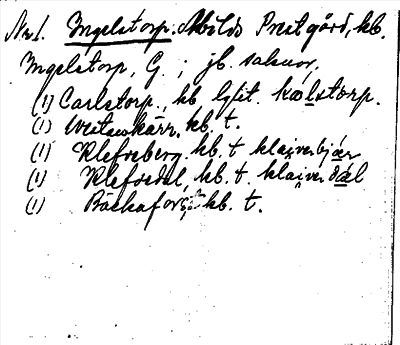 No. 1. Ingelstorp. Abilds Prestgård, kb.
Ingelstorp, G.; jb. saknor.
(1) Carlstorp., kb lytt. kælstorp.
(1) kärr. kb. t.
(1) Klefveberg. kb. t klaiverbjær
(1) Klefvedal, kb. t. klaiverdæl
(1) Bäckaforst kb. t.